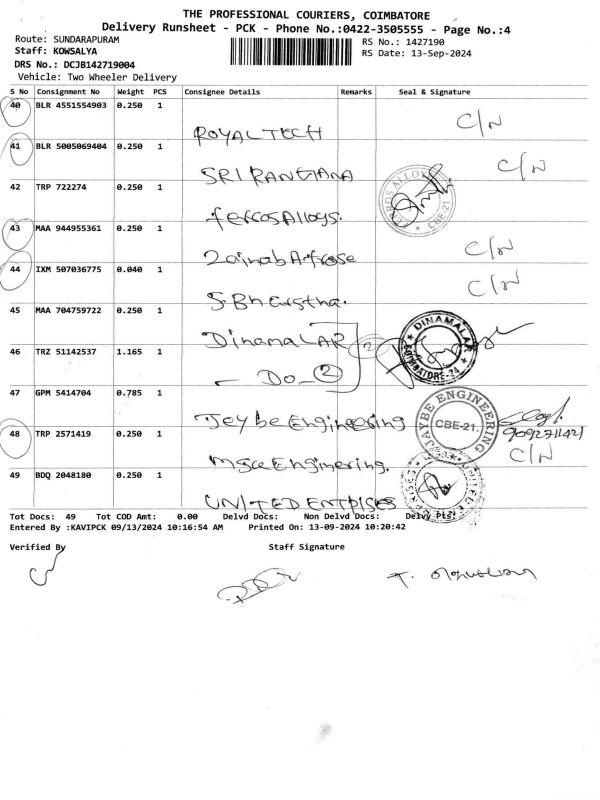 THE PROFESSIONAL COURIERS, COIMBATORE
Delivery Runsheet - PCK - Phone No.:0422-3505555 - Page No.:4
Route: SUNDARAPURAM
RS No.: 1427190
Staff: KOWSALYA
RS Date: 13-Sep-2024
DRS No.: DCJB142719004
Vehicle: Two Wheeler Delivery
S No Consignment No Weight PCS Consignee Details Remarks Seal & Signature
40 BLR 4551554903 0.250 1
ROYAL TECH C/N
41 BLR 5005069404 0.250 1
SRI RANGANA C/N
42 TRP 722274 0.250 1
fefcos Alloys. CBE-21
43 MAA 944955361 0.250 1
Zainab Afrose C/N
44 IXM 507036775 0.040 1
C/N
45 MAA 704759722 0.250 1
DinamaLAR DINAMALAR
46 TRZ 51142537 1.165 1
Do 2 COIMBATORE-24
47 GPM 5414704 0.785 1
Jey be Engineering JAYBE ENGINEERING CBE-21.
48 TRP 2571419 0.250 1
Enginering. C/N
49 BDQ 2048180 0.250 1
UNITED ENTPISES
Tot Docs: 49 Tot COD Amt: 0.00 Delvd Docs: Non Delvd Docs: Delvy Pts:
Entered By :KAVIPCK 09/13/2024 10:16:54 AM Printed On: 13-09-2024 10:20:42
Verified By Staff Signature